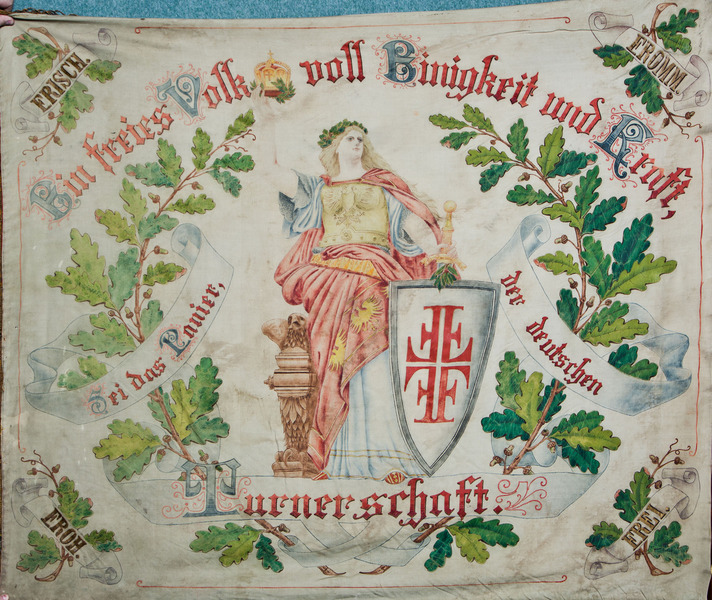 FRISCH.
FROMM.
Ein freies Volk voll Einigkeit und Kraft,
Sei das Panier,
der deutschen
Turnerschaft.
FROH.
FREI.